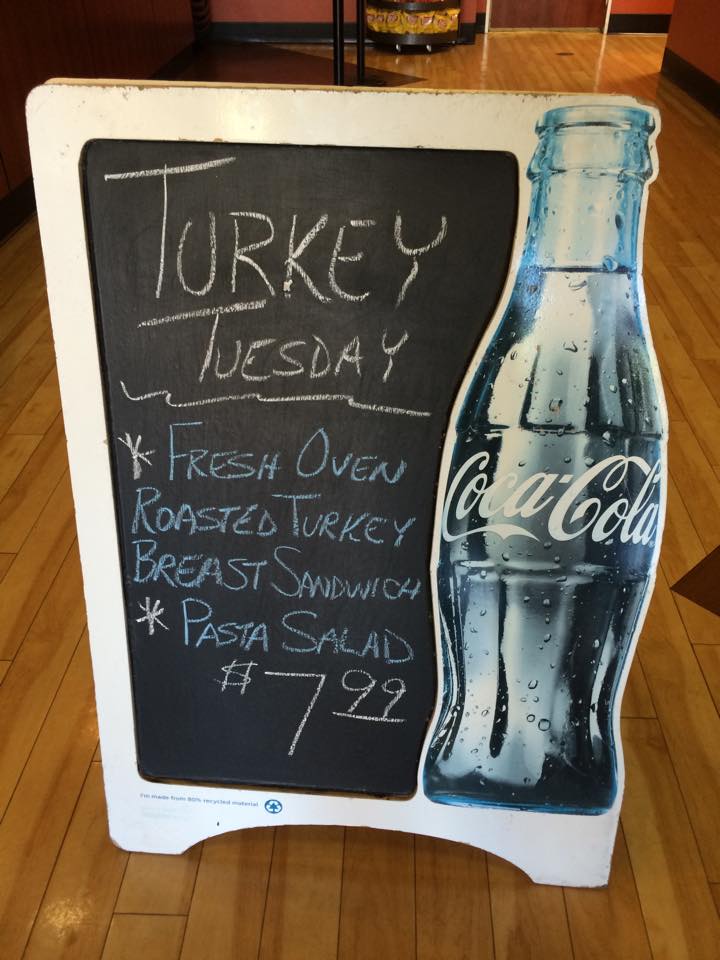 TURKEY
TUESDAY
* FRESH OVEN
ROASTED TURKEY
BREAST SANDWICH
* PASTA SALAD
$7.99
Coca-Cola
I'm made from 80% recycled material